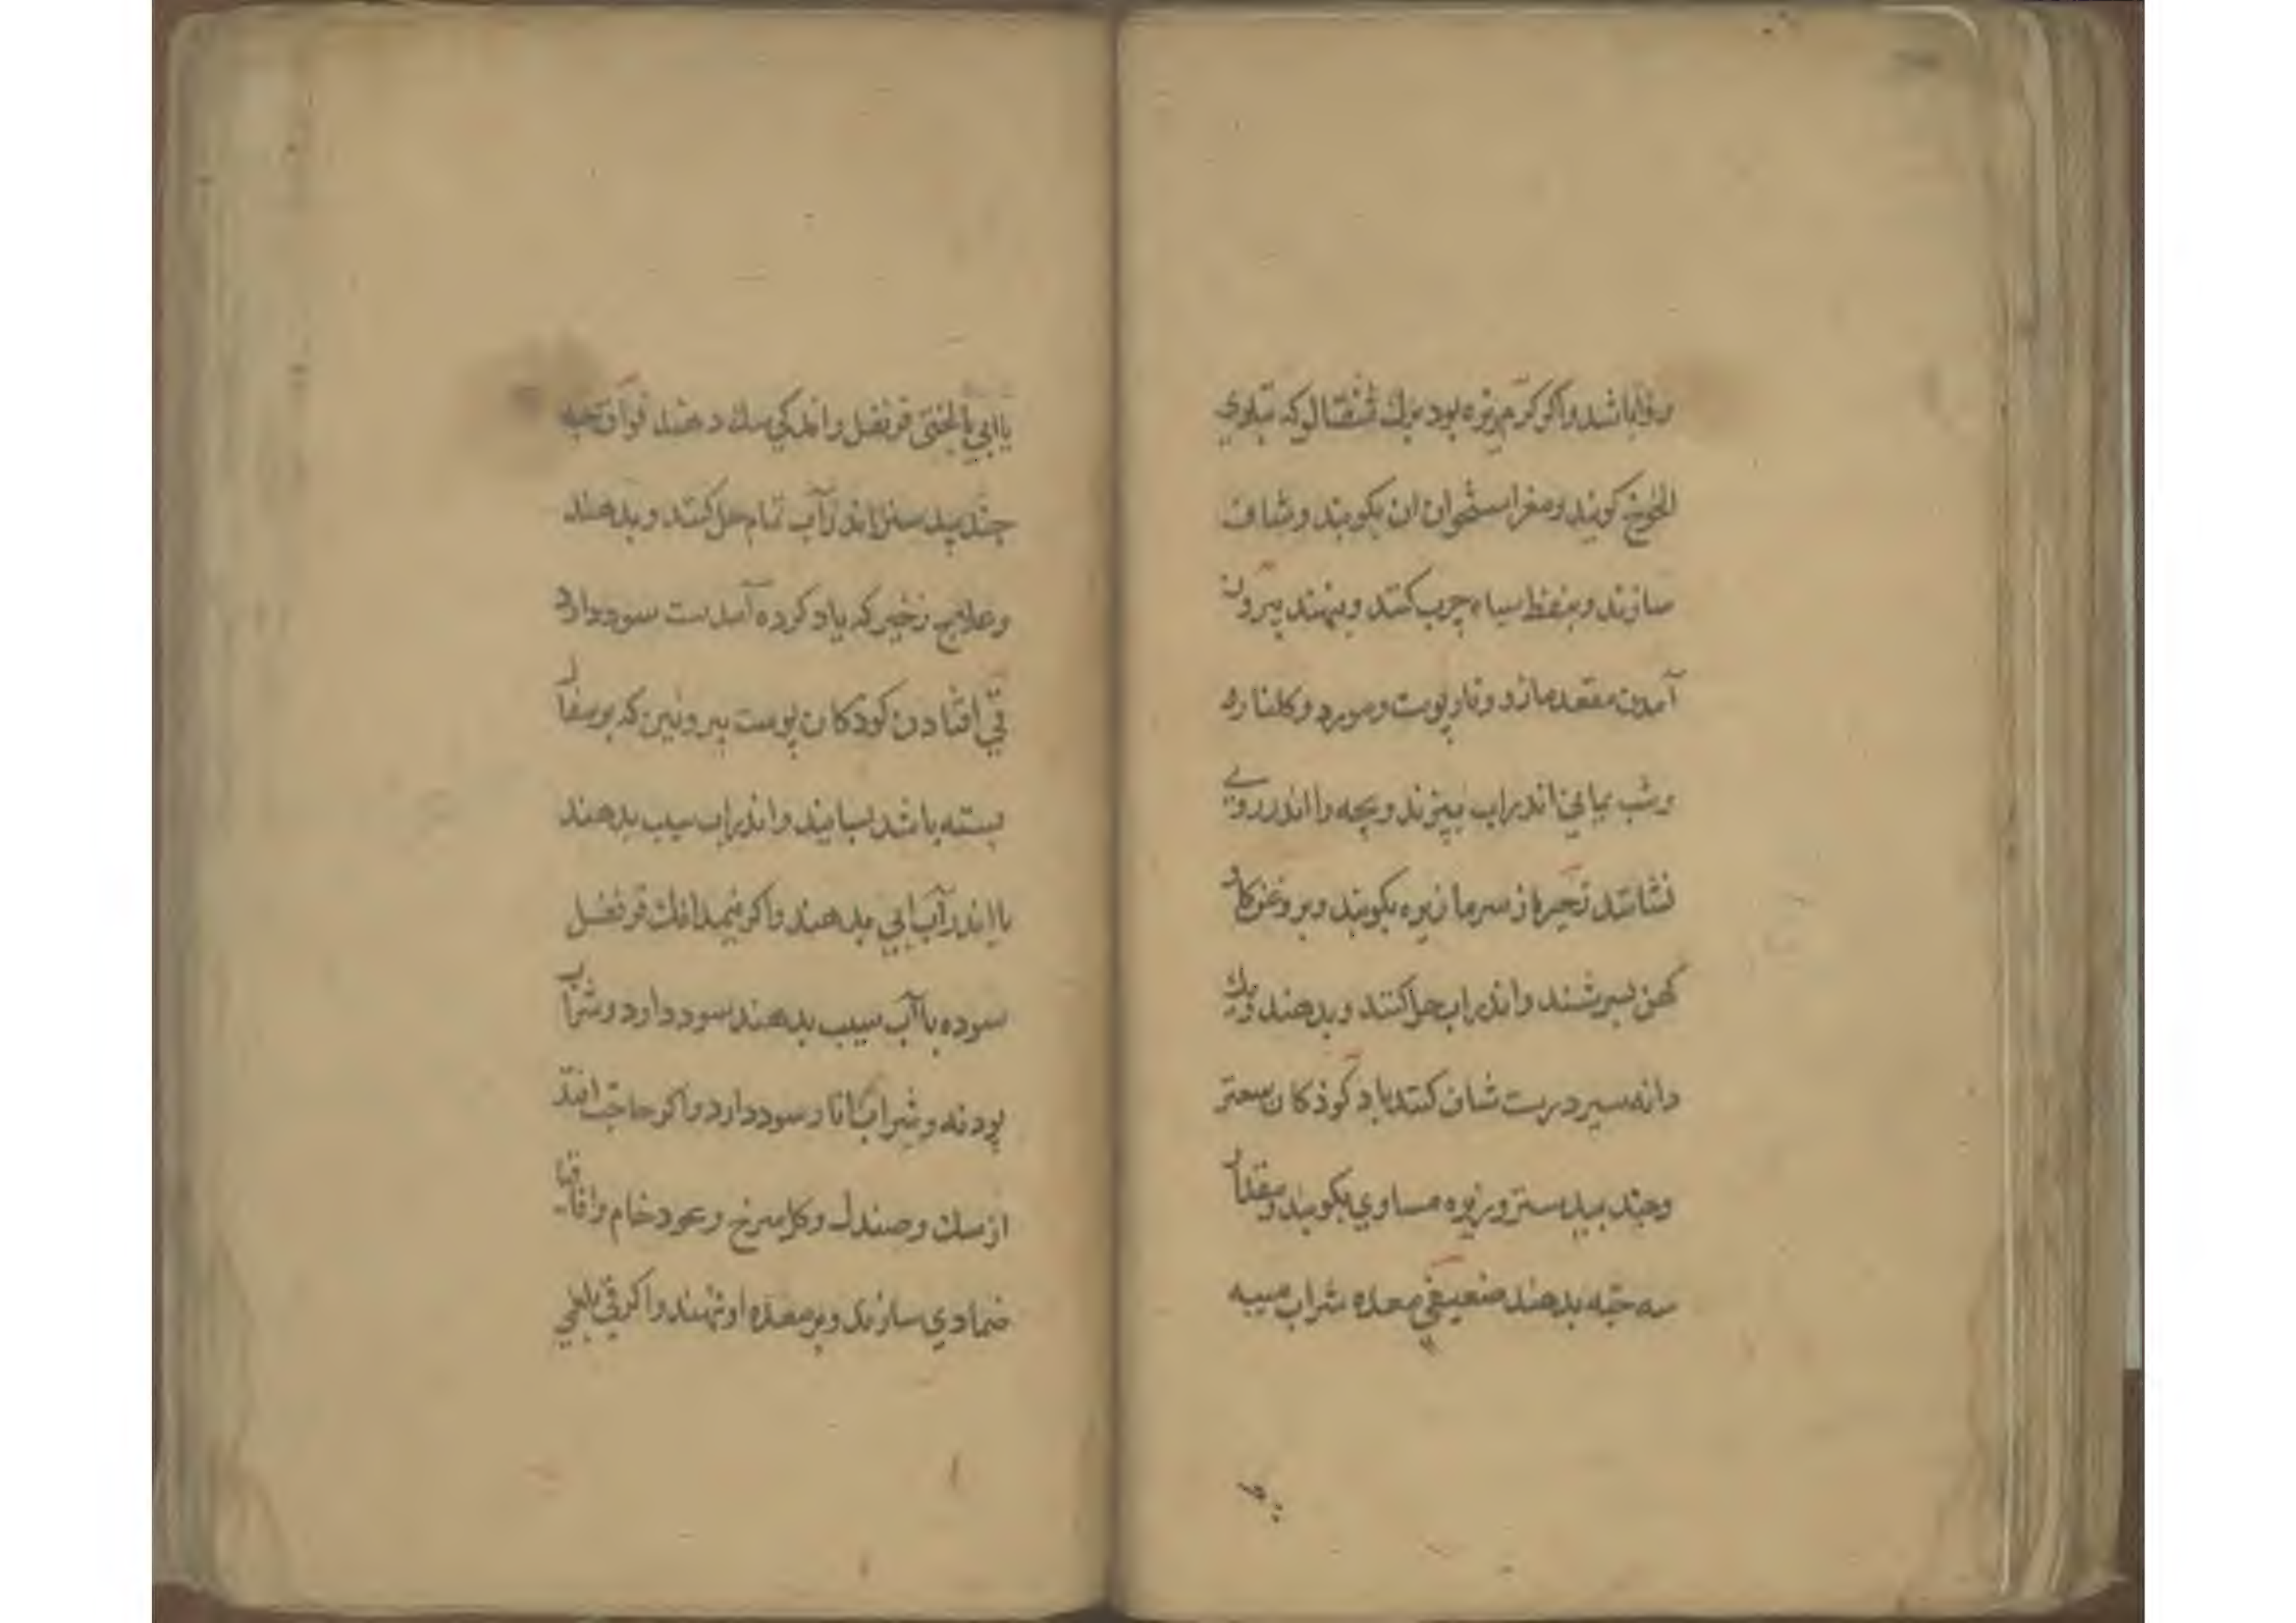 روا باشد و اکر کرم بزه بود برك شفتالو که بتازی
الخوخ کویند و مغز استخوان ان بکوبند و شاف
سازند و بنفط سیاه چرب کنند و بنهند بیرون
آمدن مقعد مازو و نار پوست و مورد و کلنار و
و شب یمانی اندر اب بپزند و بچه را اندر روی
نشانند زحیر از سرما زیره بکوبند و بروغن کاو
کهن بسرشند و اندر اب حل کنند و بدهند و یك
دانه سیر درست شاف کنند باد کوذکان سعتر
و جند بیدستر و زیره مساوی بکوبند و مقدار
سه حبه بدهند ضعیفی معده شراب میبه
یا ابی یا لختی قرنفل و اندکی سك دهند فواق حبه
جند بیدستر اندر آب تمام حل کنند و بدهند
و علاج زحیر که یاد کرده آمدست سود دارد
قی افتادن کودکان پوست بیرونین که بر سفال
بسته باشد بسایند و اندر اب سیب بدهند
یا اندر آب ابی بدهند و اکر نیمدانك قرنفل
سوده با آب سیب بدهند سود دارد و شراب
پودنه و شراب انار سود دارد و اکر حاجت افتد
از سك و صندل و کل سرخ و عود خام و اقاقیا
ضمادی سازند و بر معده او نهند و اکر قی بلغمی